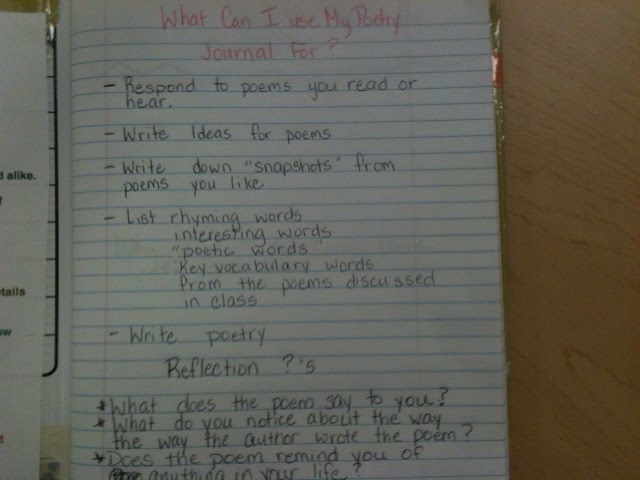 What Can I use My Poetry
Journal For?
- Respond to poems you read or
hear.
- Write Ideas for poems
- Write down "snapshots" from
poems you like
- List rhyming words
interesting words
"poetic words"
Key vocabulary words
from the poems discussed
in class
- Write poetry
Reflection ?'s
* What does the poem say to you?
* What do you notice about the way
the way the author wrote the poem?
* Does the poem remind you of
anything in your life?
d alike.
etails
ow